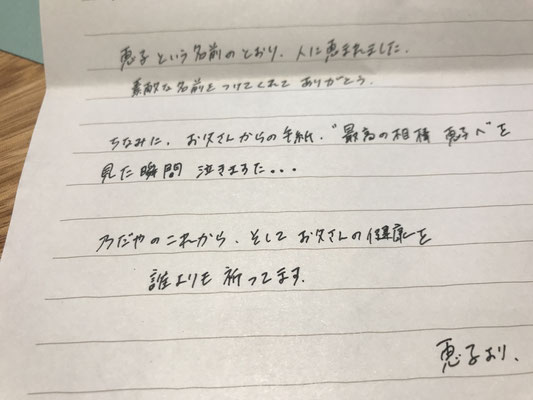 恵子という名前のとおり、人に恵まれました。
素敵な名前をつけてくれてありがとう。
ちなみに、お父さんからの手紙、"最高の相棒 恵子へ"を
見た瞬間 泣きますた・・・
乃だやのこれから、そしてお父さんの健康を
誰よりも祈ってます。
恵子より、